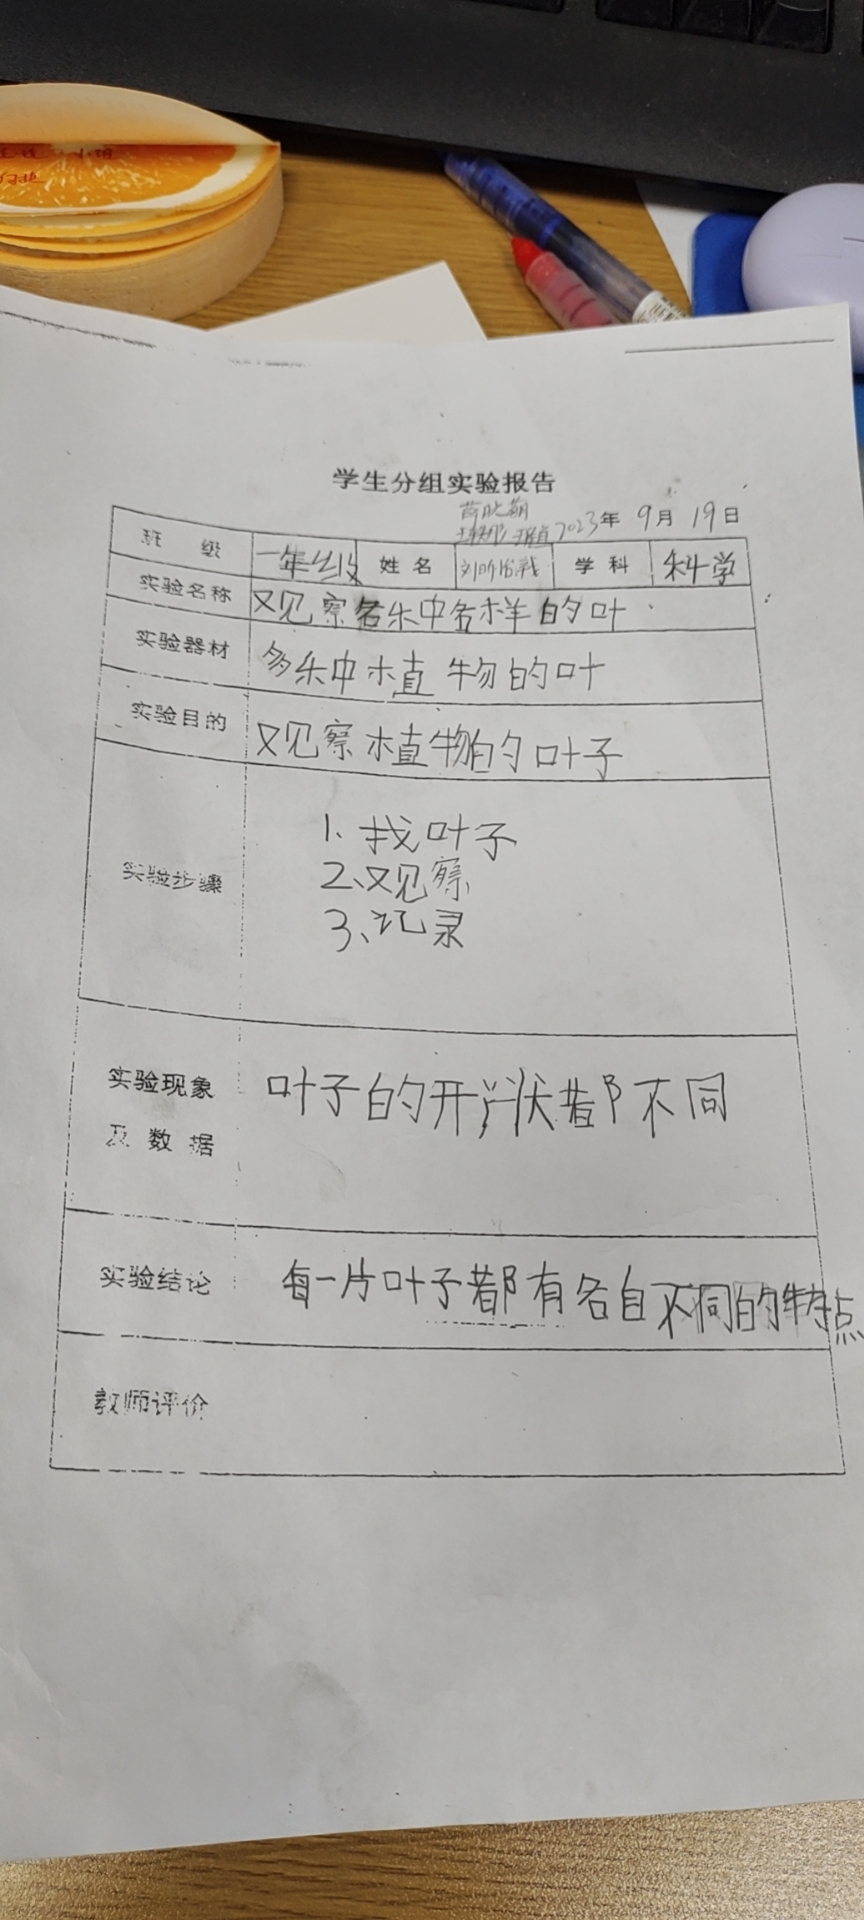 学生分组实验报告
2023年 9月 19日
班 级 一年级 姓名 学科 科学
实验名称 观察各乐中各样的叶
实验器材 多乐中植物的叶
实验目的 观察植物的叶子
实验步骤
1、找叶子
2、观察
3、记录
实验现象
及 数 据
叶子的形状都不同
实验结论 每一片叶子都有各自不同的特点
教师评价